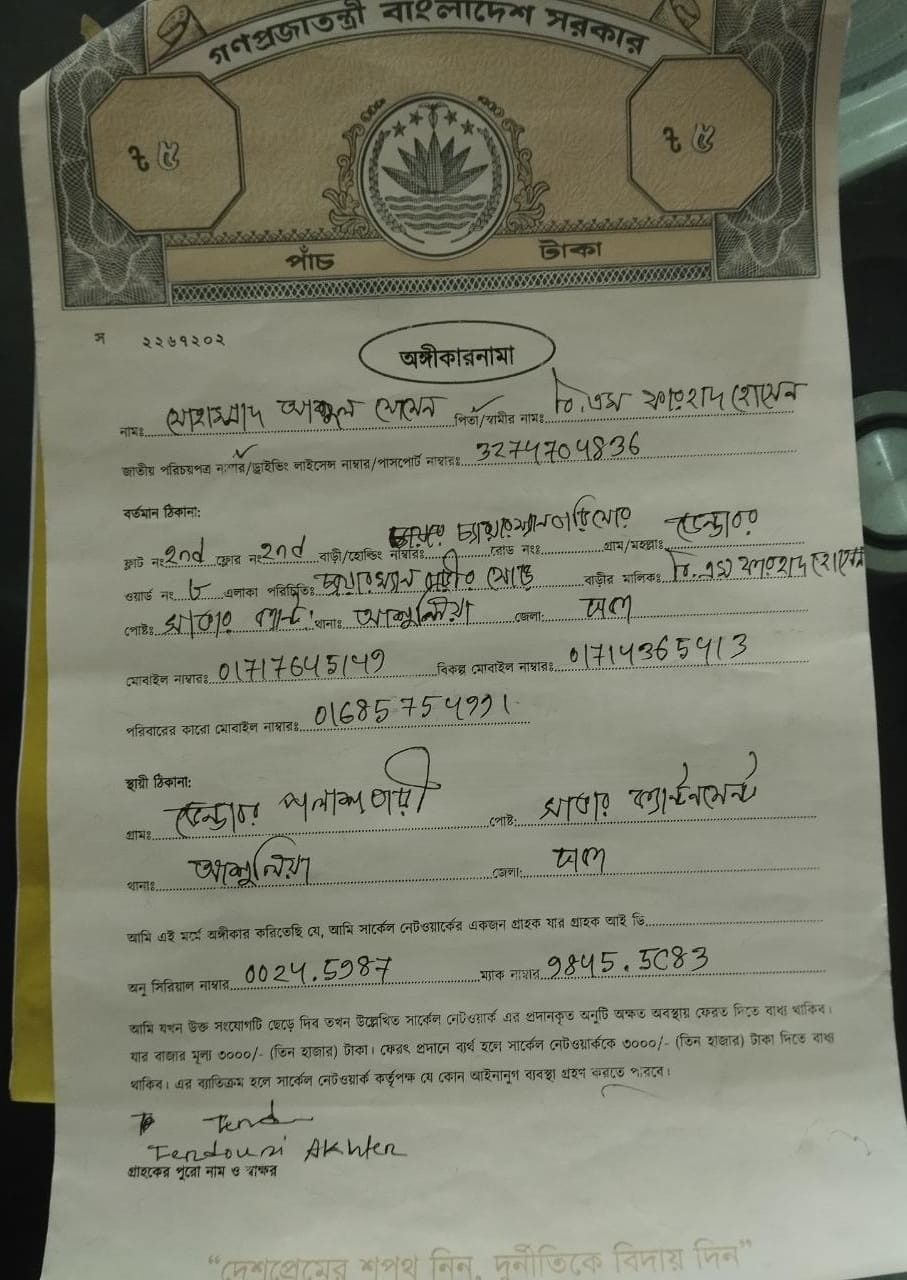 গণপ্রজাতন্ত্রী বাংলাদেশ সরকার
৳ ৫ ৳ ৫
পাঁচ টাকা
স ২২৬৭২০২
অঙ্গীকারনামা
নামঃ মোহাম্মাদ আব্দুল মোমেন পিতা/স্বামীর নামঃ ডি.এম ফরহাদ হোসেন
জাতীয় পরিচয়পত্র নাম্বার/ড্রাইভিং লাইসেন্স নাম্বার/পাসপোর্ট নাম্বারঃ 3274704836
বর্তমান ঠিকানা:
ফ্লাট নং 2nd ফ্লোর নং 2nd বাড়ী/হোল্ডিং নাম্বারঃ রোড নংঃ গ্রাম/মহল্লাঃ
ওয়ার্ড নং ৮ এলাকা পরিচিতিঃ চেয়ারম্যান বাড়ীর রোড বাড়ীর মালিকঃ ডি.এম ফরহাদ হোসেন
পোষ্টঃ সাভার ক্যান্ট: থানাঃ আশুলিয়া জেলা: ঢাকা
মোবাইল নাম্বারঃ 01717645149 বিকল্প মোবাইল নাম্বারঃ 01714365413
পরিবারের কারো মোবাইল নাম্বারঃ 01685754991
স্থায়ী ঠিকানা:
গ্রামঃ পলাশবাড়ী পোষ্ট: সাভার ক্যান্টনমেন্ট
থানাঃ আশুলিয়া জেলা: ঢাকা
আমি এই মর্মে অঙ্গীকার করিতেছি যে, আমি সার্কেল নেটওয়ার্কের একজন গ্রাহক যার গ্রাহক আই ডি
অনু সিরিয়াল নাম্বার 0024.5987 ম্যাক নাম্বার 9845.5C83
আমি যখন উক্ত সংযোগটি ছেড়ে দিব তখন উল্লেখিত সার্কেল নেটওয়ার্ক এর প্রদানকৃত অনুটি অক্ষত অবস্থায় ফেরত দিতে বাধ্য থাকিব।
যার বাজার মূল্য ৩০০০/- (তিন হাজার) টাকা। ফেরৎ প্রদানে ব্যর্থ হলে সার্কেল নেটওয়ার্ককে ৩০০০/- (তিন হাজার) টাকা দিতে বাধ্য
থাকিব। এর ব্যতিক্রম হলে সার্কেল নেটওয়ার্ক কর্তৃপক্ষ যে কোন আইনানুগ ব্যবস্থা গ্রহণ করতে পারবে।
Ferdousi Akhter
গ্রাহকের পুরো নাম ও স্বাক্ষর
“দেশপ্রেমের শপথ নিন, দুর্নীতিকে বিদায় দিন”